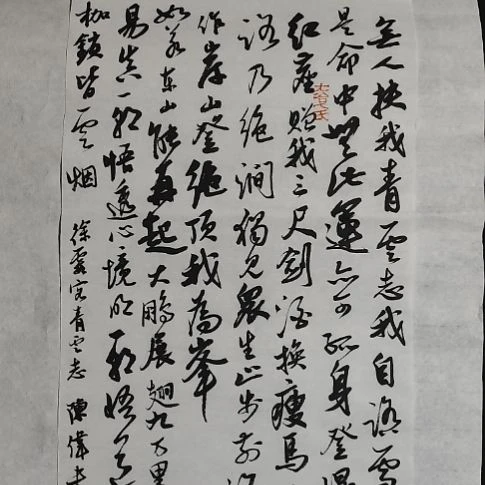 無人扶我青雲志我自踏雪
是命中無此運亦可孤身登崑
红塵贈我三尺劍酒換瘦馬
踏乃绝澗獨見眾生止步前
作岸山登绝頂我為峯
如若东山能再起大鵬展翅九万里
易真一朝悟透心境明一朝悟
枷鎖皆雲烟
徐霞客青雲志 陳偉